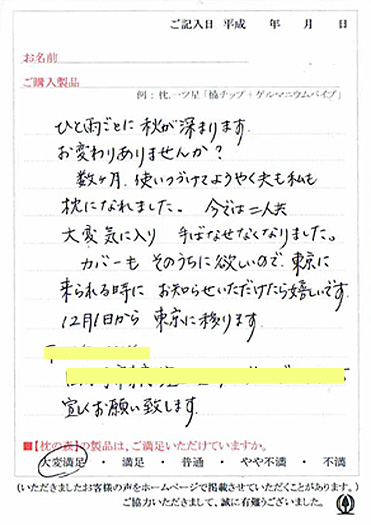 ご記入日 平成 年 月 日
お名前
ご購入製品
例：枕.一ツ星「檜チップ＋ゲルマニウムパイプ」
ひと雨ごとに秋が深まります.
お変わりありませんか？
数ヶ月.使いつづけてようやく夫も私も
枕になれました。 今では二人共
大変気に入り 手ばなせなくなりました。
カバーも そのうちに欲しいので.東京に
来られる時に お知らせいただけたら嬉しいです.
12月1日から 東京に移ります.
宜しくお願い致します.
■【枕の
】の製品は、ご満足いただけていますか。
大変満足 ・ 満足 ・ 普通 ・ やや不満 ・ 不満
(いただきましたお客様の声をホームページで掲載させていただくことがあります。)
ご協力いただきまして、誠に有難うございました。